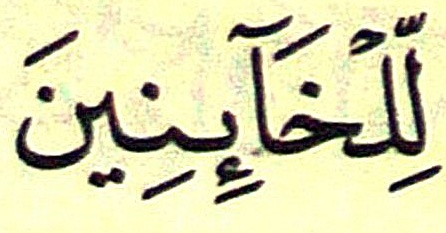 لِّلْخَآئِنِينَ